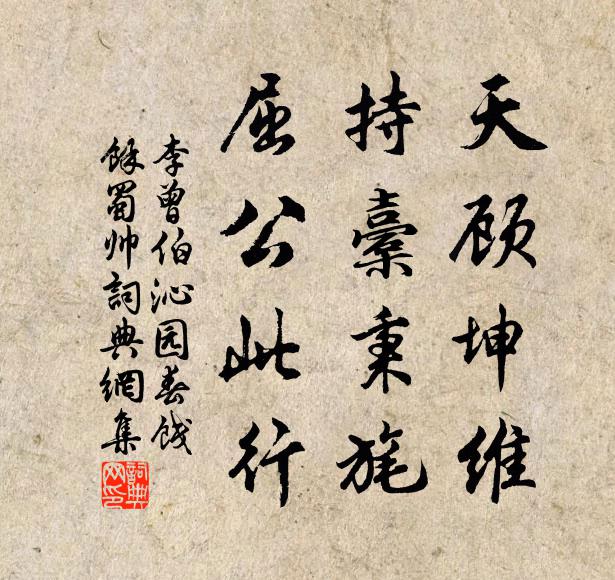 天顾坤维
持橐秉旄
屈公此行
李曾伯沁园春饯
餘蜀帅詞典網集
詞典网印